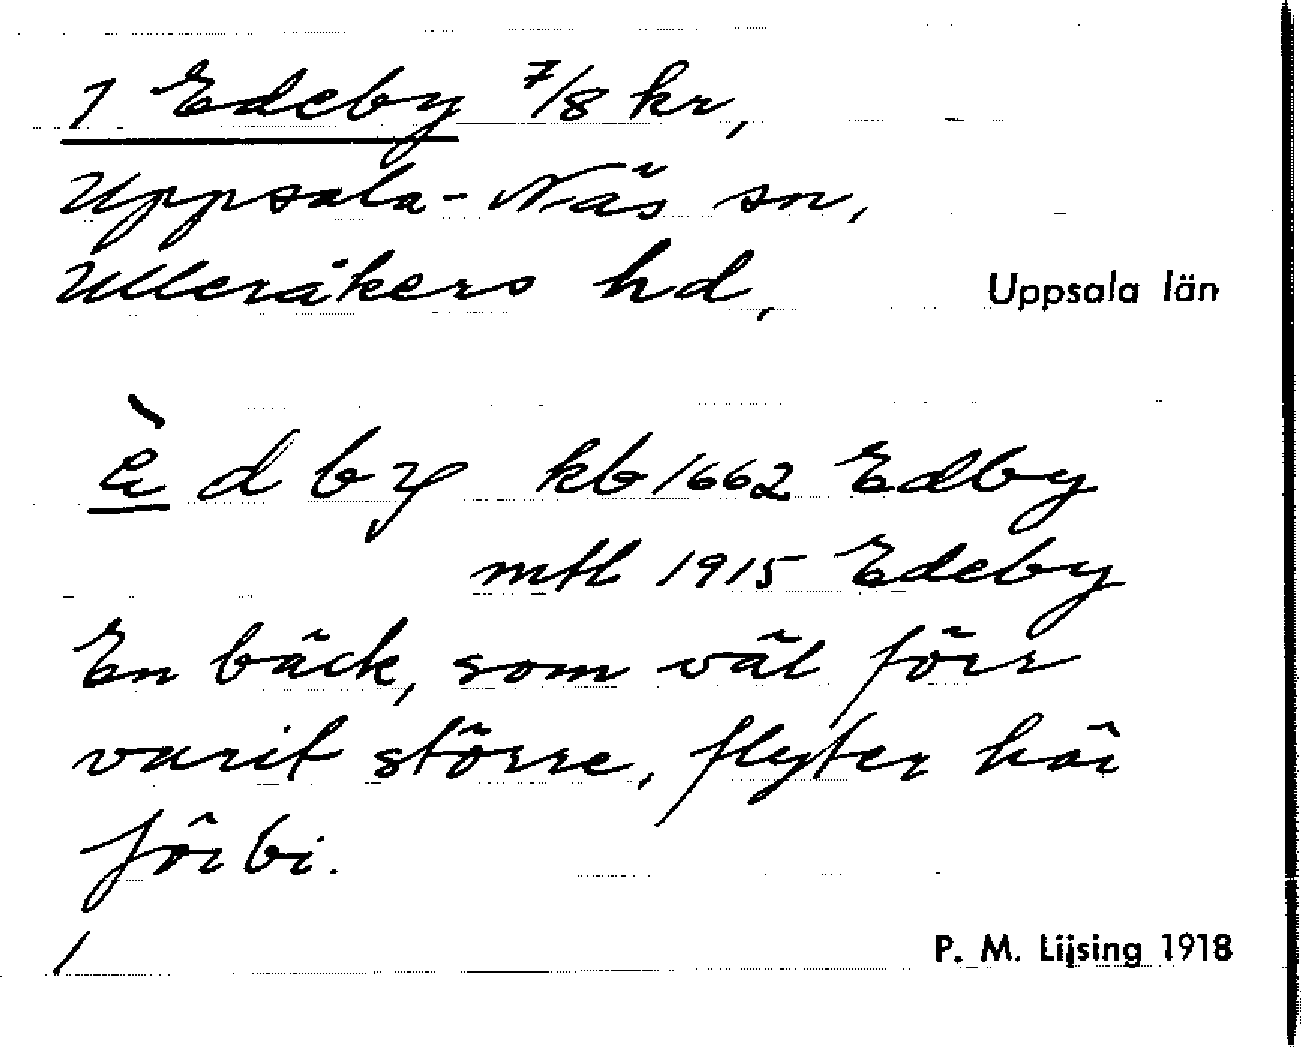 1 Edeby 7/8 kr,
Uppsala-Näs sn,
Ulleråkers hd,
Uppsala län
è d b y kb 1662 Edby
mtl 1915 Edeby
En bäck, som väl förr
varit större, flyter här
förbi.
P. M. Lijsing 1918